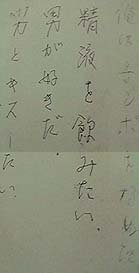 精液を飲みたい。
男が好きだ。
男とキスしたい。